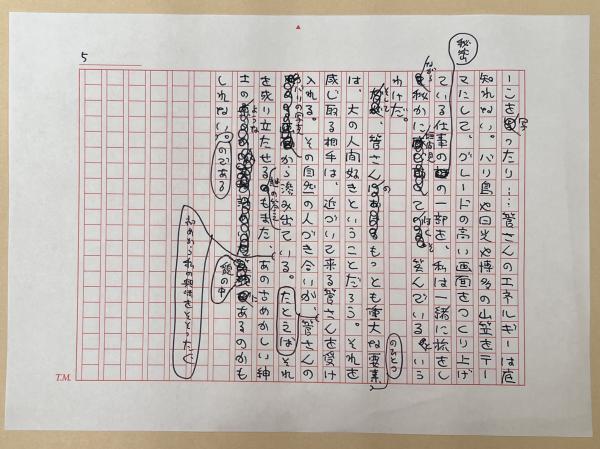 5
ーこを写ったり…、管さんのエネルギーは底
知れない。バリ島や日光や博多の山笠をテー
マにして、グレードの高い画面をつくり上げ
ている仕事の一部を、私は一緒に旅をし
秘密
ながら
秘かに
して
笑んでいるという
わけだ。
そして
管さんの
もっとも重大な要素
のひとつ
は、大の人間好きということだろう。それを
感じ取る相手は、近づいて来る管さんを受け
入れる。その自然の人づき合いが、管さんの
バリの写真
から滲み出ている。たとえばそれ
を成り立たせる
謎の答え
もまた、あのさめかしい紳
士の
ような
謎の中
にあるのかも
しれない。のである
初めから私の興味をそそったが
T.M.